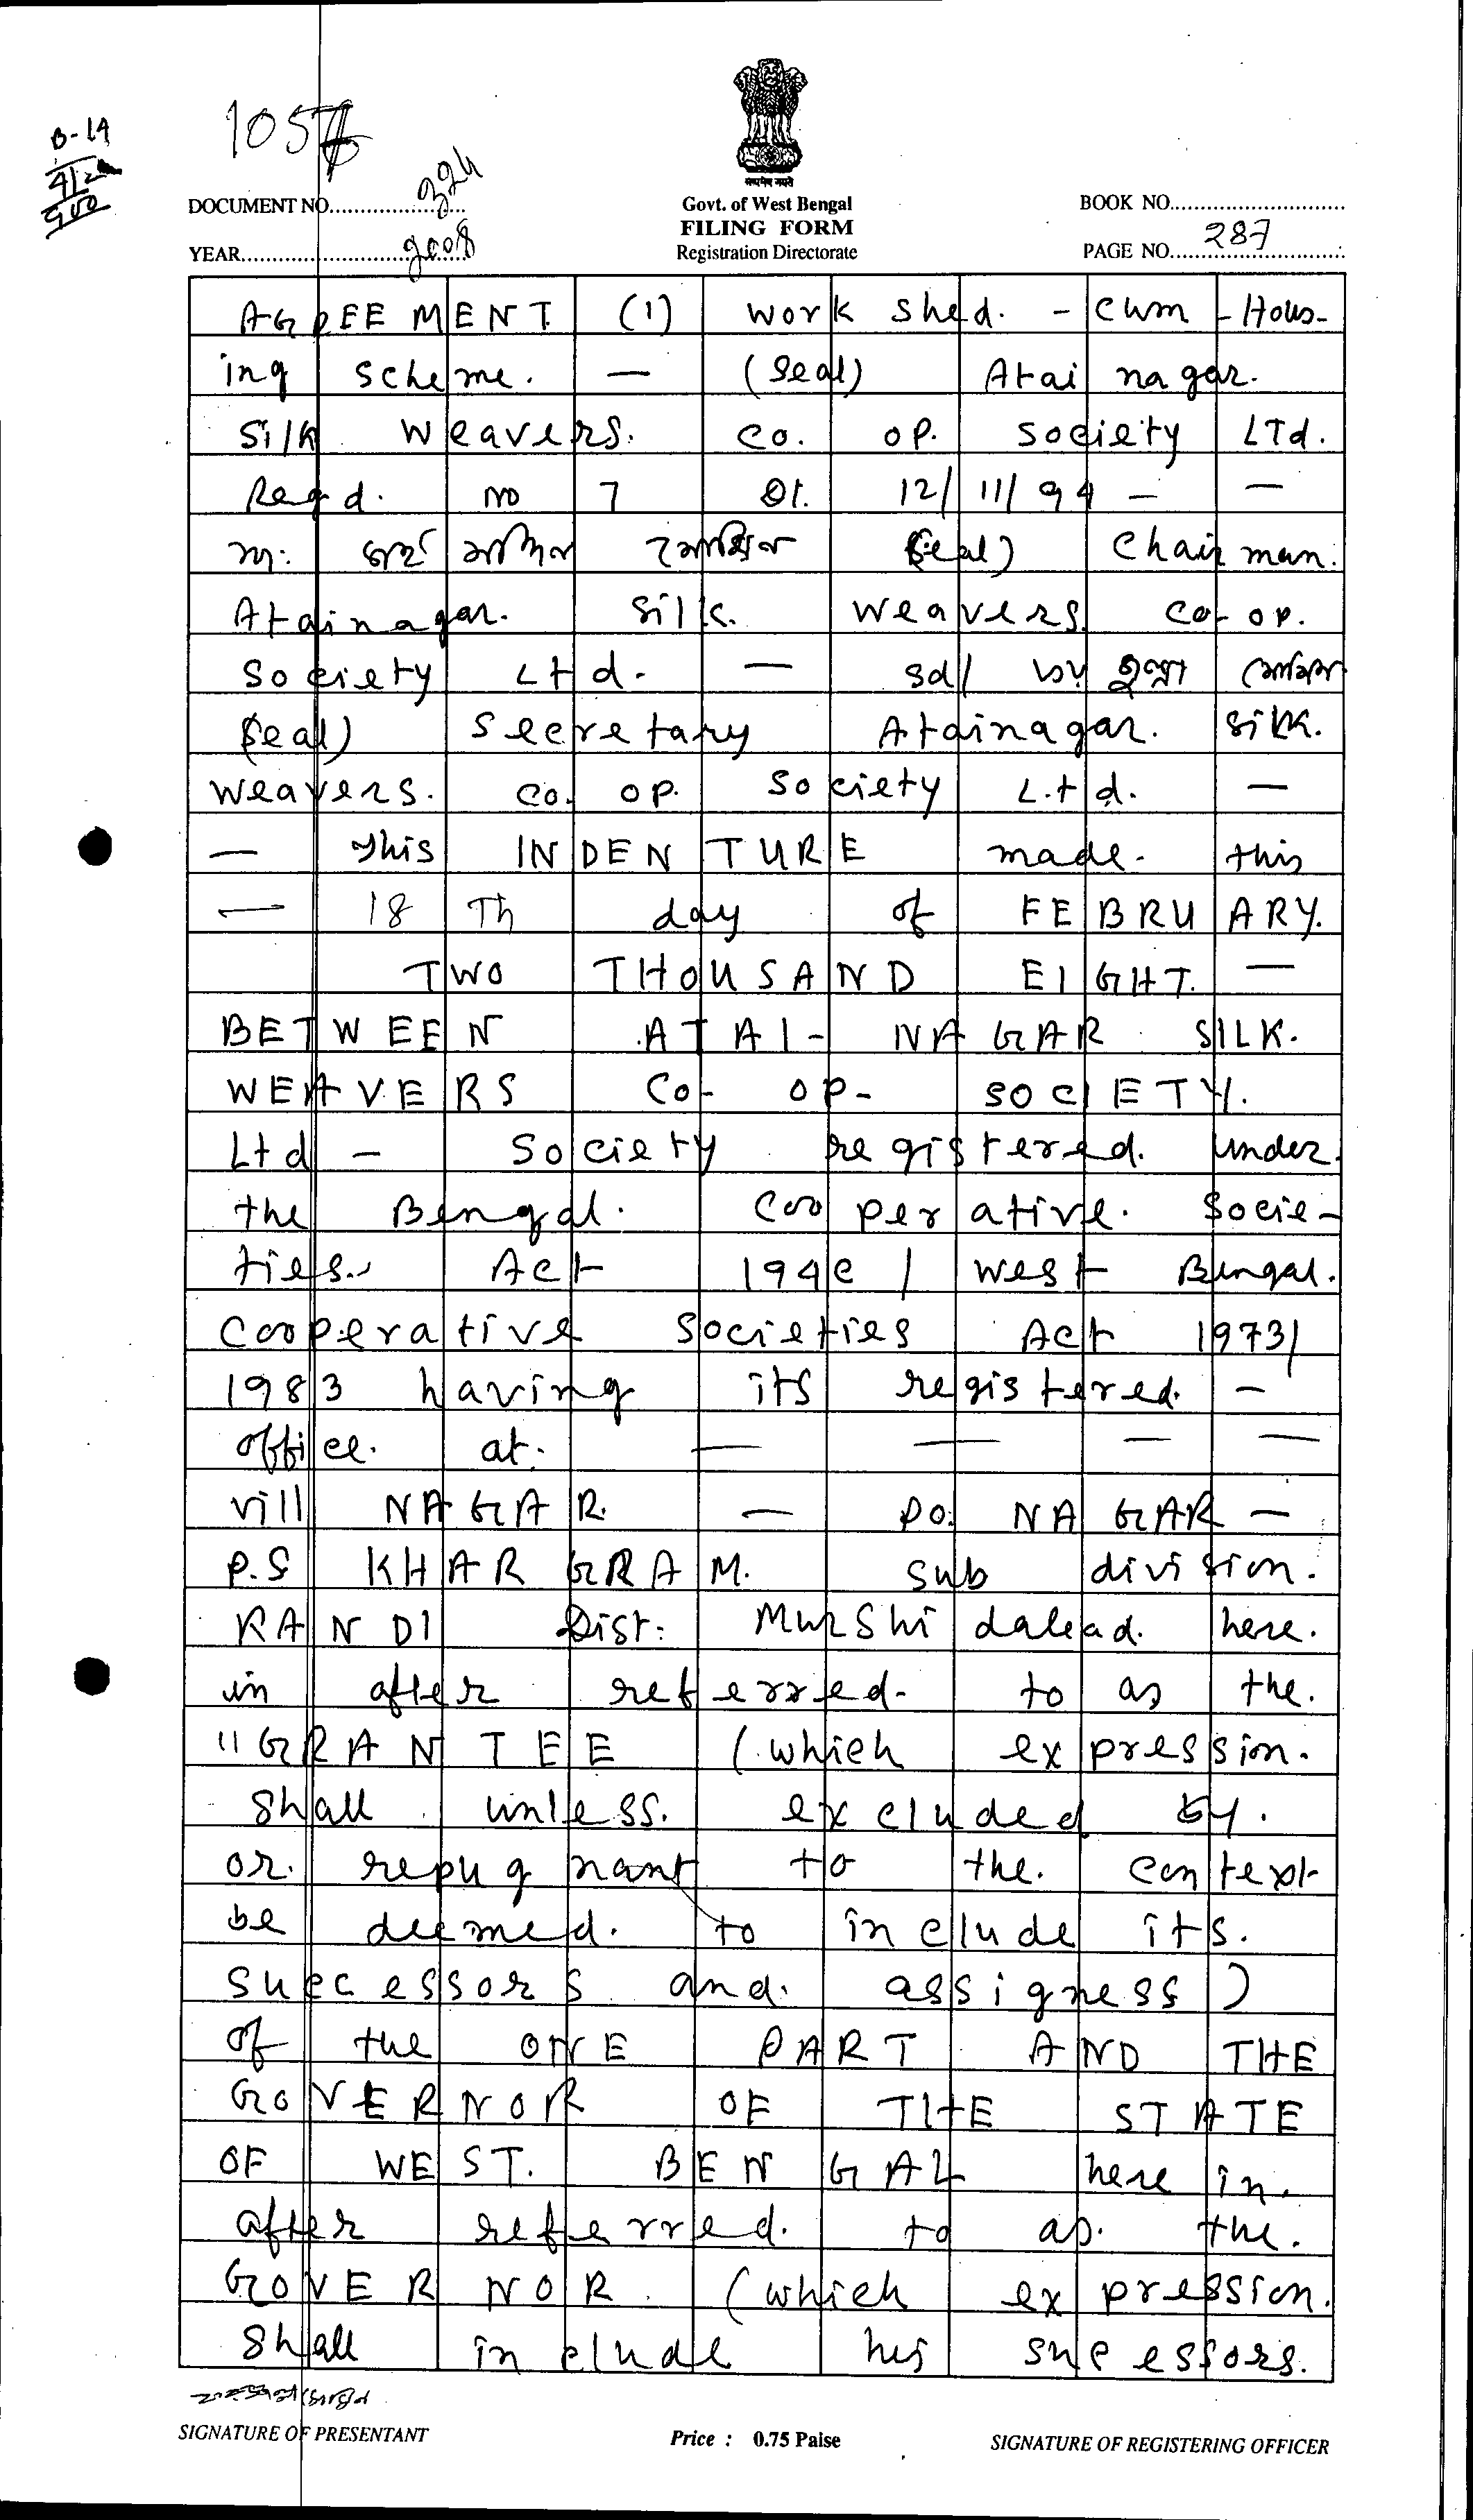 B-14
1057
सत्यमेव जयते
DOCUMENT NO.................224
Govt. of West Bengal
BOOK NO...........................
FILING FORM
YEAR........................2008
Registration Directorate
PAGE NO.....287.....
AGREEMENT (1) Work shed. - Cum - Hous-
ing scheme. — (Seal) Atai nagar.
Silk Weavers. Co. op. Society LTd.
Regd. no 7 Dt. 12/11/94 — —
(Seal) Chairman.
Atainagar. Silk. Weavers. Co- op.
Society Ltd. — sd/
(Seal) Secretary Atainagar. Silk.
Weavers. Co. op. Society L.td. —
— This INDENTURE made. this
— 18 Th day of FEBRUARY.
TWO THOUSAND EIGHT. —
BETWEEN ATAI- NAGAR SILK.
WEAVERS Co- op- SOCIETY.
Ltd — Society registered. under.
the Bengal. Cooperative. Socie-
ties. Act 1940 / West Bengal.
Cooperative Societies Act 1973/
1983 having its registered. —
office. at. — — — —
vill NAGAR. — PO. NAGAR —
P.S KHARGRAM. Sub division.
KANDI Dist: Murshidabad. here.
in after referred. to as the.
"GRANTEE (which expression.
Shall unless. excluded by.
or. repugnant to the. context
be deemed. to include its.
successors and. assigness)
of the ONE PART AND THE
GOVERNOR OF THE STATE
OF WEST. BENGAL here in.
after referred. to as. the.
GOVERNOR. (which expression.
Shall include his sucessors.
SIGNATURE OF PRESENTANT
Price : 0.75 Paise
SIGNATURE OF REGISTERING OFFICER